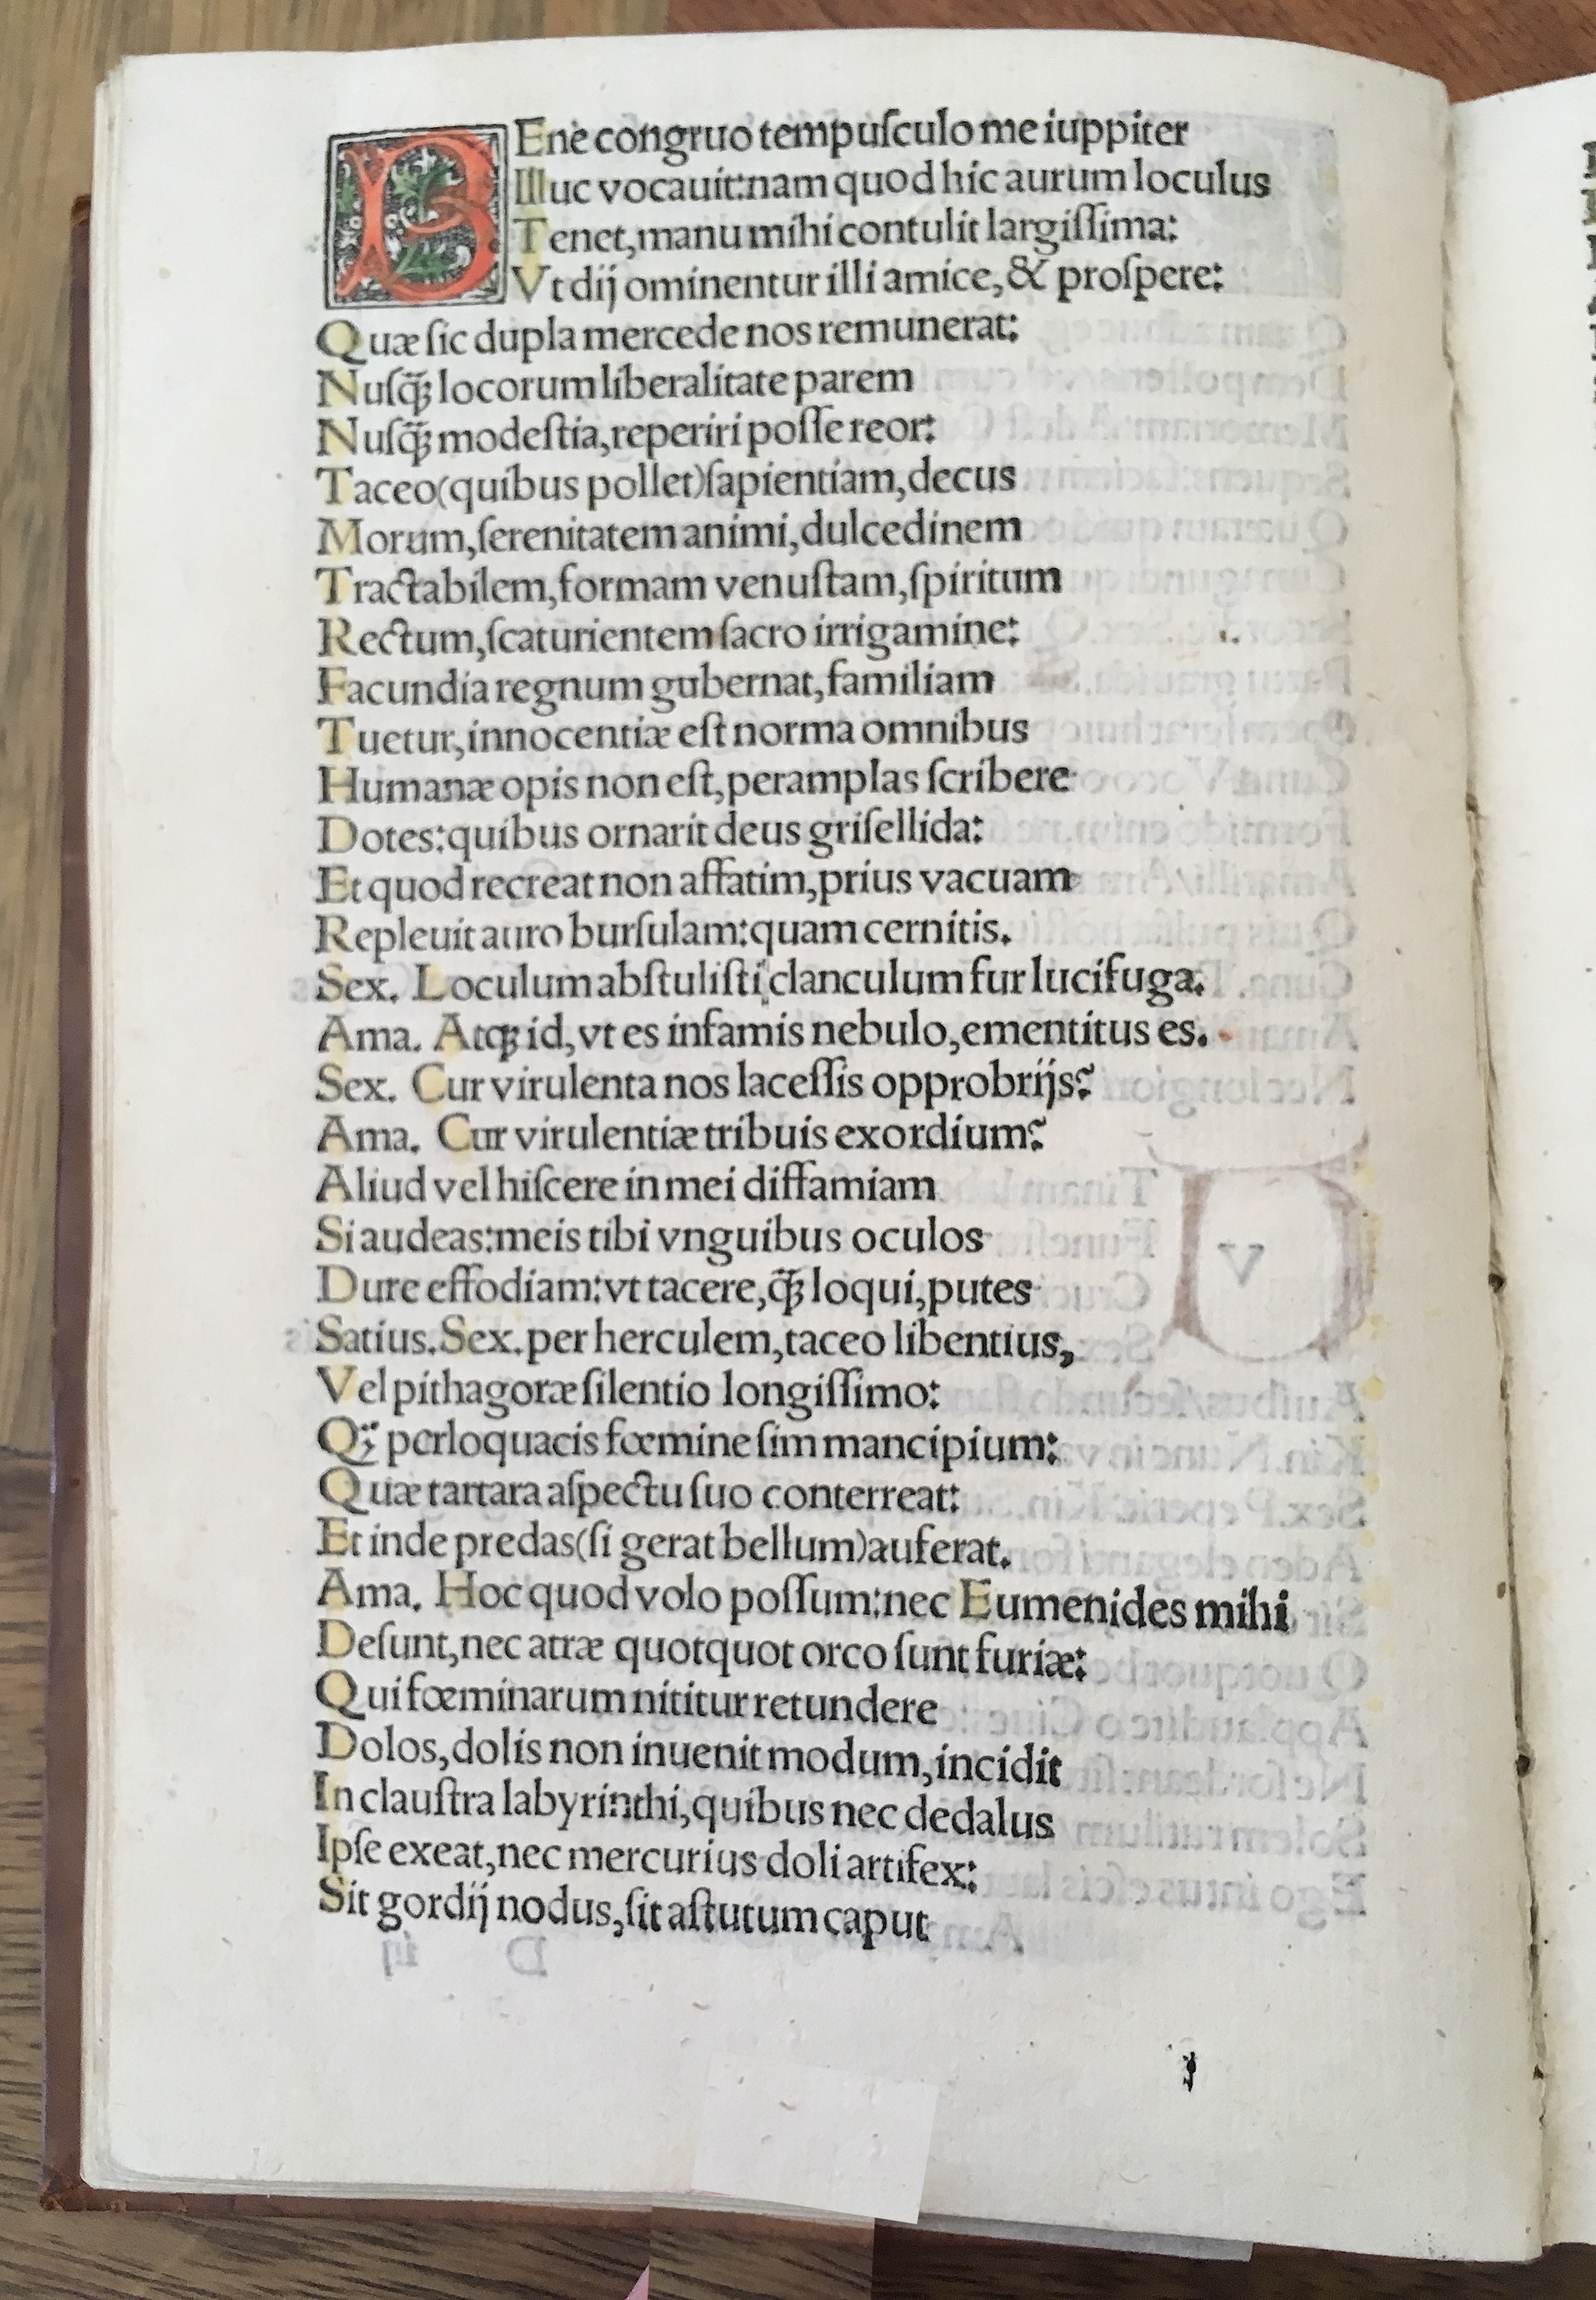 BEne congruo tempuſculo me iuppiter
Illuc vocauit:nam quod hic aurum loculus
Tenet,manu mihi contulit largiſſima:
Vt dij ominentur illi amice,& proſpere:
Quæ ſic dupla mercede nos remunerat:
Nuſq̈ꝫ locorum liberalitate parem
Nuſq̈ꝫ modeſtia,reperiri poſſe reor:
Taceo(quibus pollet)ſapientiam,decus
Morum,ſerenitatem animi,dulcedinem
Tractabilem,formam venuſtam,ſpiritum
Rectum,ſcaturientem ſacro irrigamine:
Facundia regnum gubernat,familiam
Tuetur,innocentiæ eſt norma omnibus
Humanæ opis non eſt,peramplas ſcribere
Dotes:quibus ornarit deus griſellida:
Et quod recreat non affatim,prius vacuam
Repleuit auro burſulam:quam cernitis.
Sex. Loculum abſtuliſti,clanculum fur lucifuga.
Ama. Atqꝫ id,vt es infamis nebulo,ementitus es.
Sex. Cur virulenta nos laceſſis opprobrijs?
Ama. Cur virulentiæ tribuis exordium?
Aliud vel hiſcere in mei diffamiam
Si audeas:meis tibi vnguibus oculos
Dure effodiam:vt tacere,q̈ꝫ loqui,putes
Satius.Sex.per herculem,taceo libentius,
Vel pithagoræ ſilentio longiſſimo:
Q̈ꝫ perloquacis fœmine ſim mancipium:
Quæ tartara aſpectu ſuo conterreat:
Et inde predas(ſi gerat bellum)auferat.
Ama. Hoc quod volo poſſum:nec Eumenides mihi
Deſunt,nec atræ quotquot orco ſunt furiæ:
Qui fœminarum nititur retundere
Dolos,dolis non inuenit modum,incidit
In clauſtra labyrinthi,quibus nec dedalus
Ipſe exeat,nec mercurius doli artifex:
Sit gordij nodus,ſit aſtutum caput